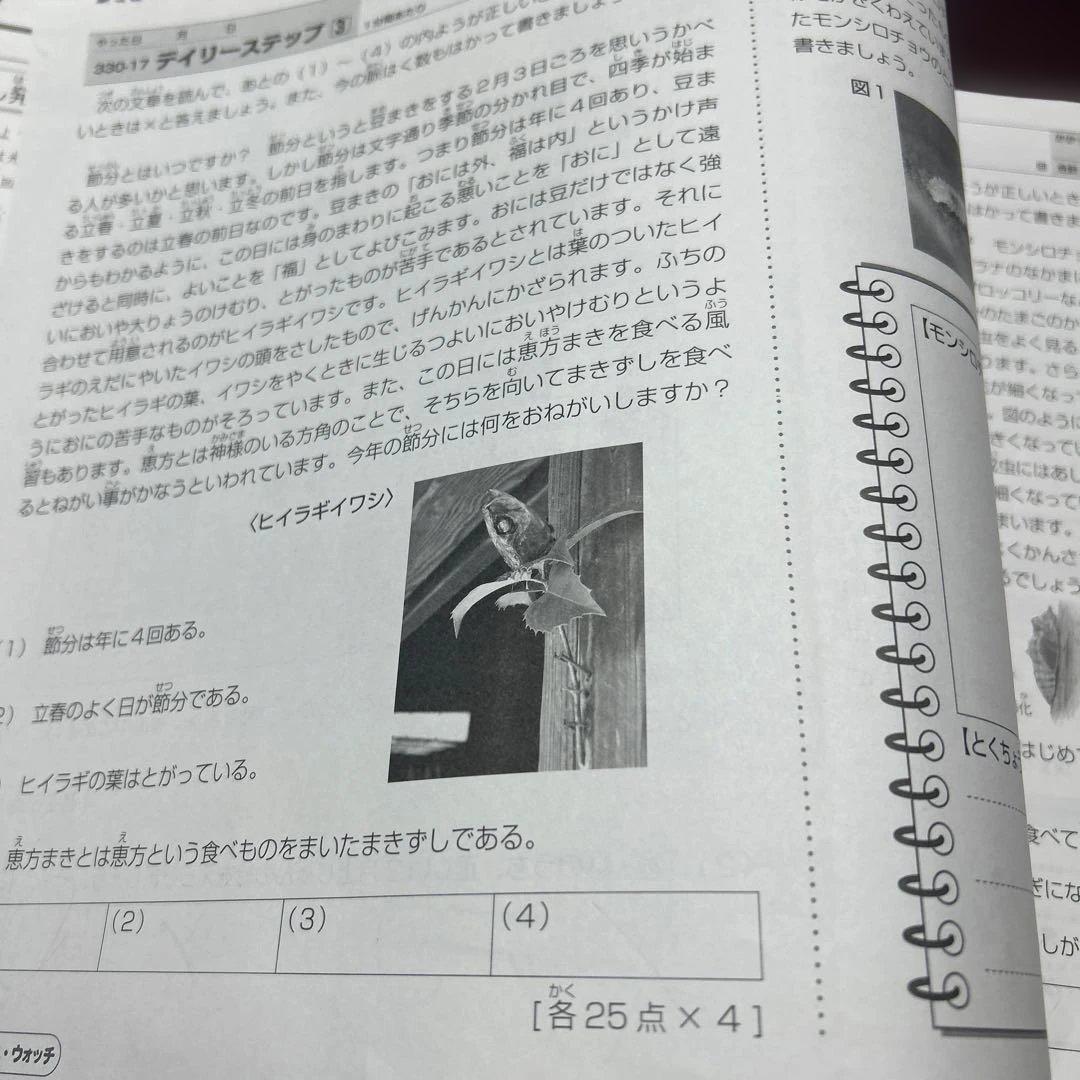 やった日 月 日
330-17 デイリーステップ ③ 1分間あたり
次の文章を読んで、あとの（1）～（4）の内ようが正しい
いときは×と答えましょう。また、今の脈はく数もはかって書きましょう。
節分とはいつですか？ 節分というと豆まきをする2月3日ごろを思いうかべ
る人が多いかと思います。しかし節分は文字通り季節の分かれ目で、四季が始ま
る立春・立夏・立秋・立冬の前日を指します。つまり節分は年に4回あり、豆ま
きをするのは立春の前日なのです。豆まきの「おには外、福は内」というかけ声
からもわかるように、この日には身のまわりに起こる悪いことを「おに」として遠
ざけると同時に、よいことを「福」としてよびこみます。おには豆だけではなく強
いにおいや大りょうのけむり、とがったものが苦手であるとされています。それに
合わせて用意されるのがヒイラギイワシです。ヒイラギイワシとは葉のついたヒイ
ラギのえだにやいたイワシの頭をさしたもので、げんかんにかざられます。ふちの
とがったヒイラギの葉、イワシをやくときに生じるつよいにおいやけむりというよ
うにおにの苦手なものがそろっています。また、この日には恵方まきを食べる風
習もあります。恵方とは神様のいる方角のことで、そちらを向いてまきずしを食べ
るとねがい事がかなうといわれています。今年の節分には何をおねがいしますか？
〈ヒイラギイワシ〉
1） 節分は年に4回ある。
2） 立春のよく日が節分である。
） ヒイラギの葉はとがっている。
恵方まきとは恵方という食べものをまいたまきずしである。
（2） （3） （4）
[各25点×4]
・ウォッチ
たモンシロチョウの
書きましょう。
図1
【モンシロ
【とくちょ
うが正しいとき
はかって書きま
モンシロチョ
ラナのなかまい
ロッコリーな
のたまごのか
虫をよく見る
ります。さら
が細くなっ
。図のように
きくなってい
虫にはあし
細くなって
まいます。
くかんさ
るでしょう
化
はじめて
食べて
ぎにな
しが